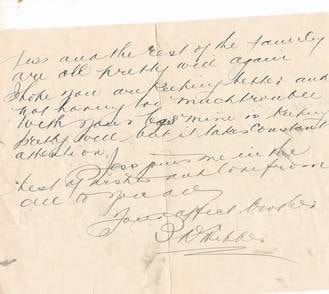 Jess and the rest of the family
are all pretty well again
I hope you are keeping better and
not having too much trouble
with your leg mine is keeping
pretty well but it takes constant
attention.
Jess joins me in the
best of wishes and love from
all to you all
Your affect brother